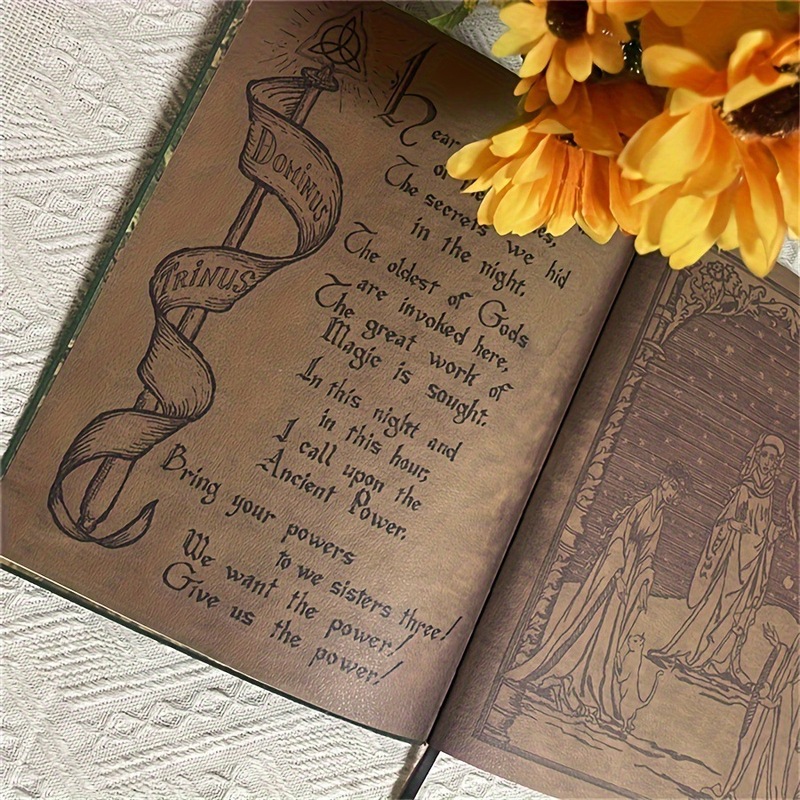 DOMINUS
TRINUS
hear
of
The secrets we hid
in the night.
The oldest of Gods
are invoked here,
The great work of
Magic is sought.
In this night and
in this hour,
I call upon the
Ancient Power.
Bring your powers
to we sisters three!
We want the power!
Give us the power!